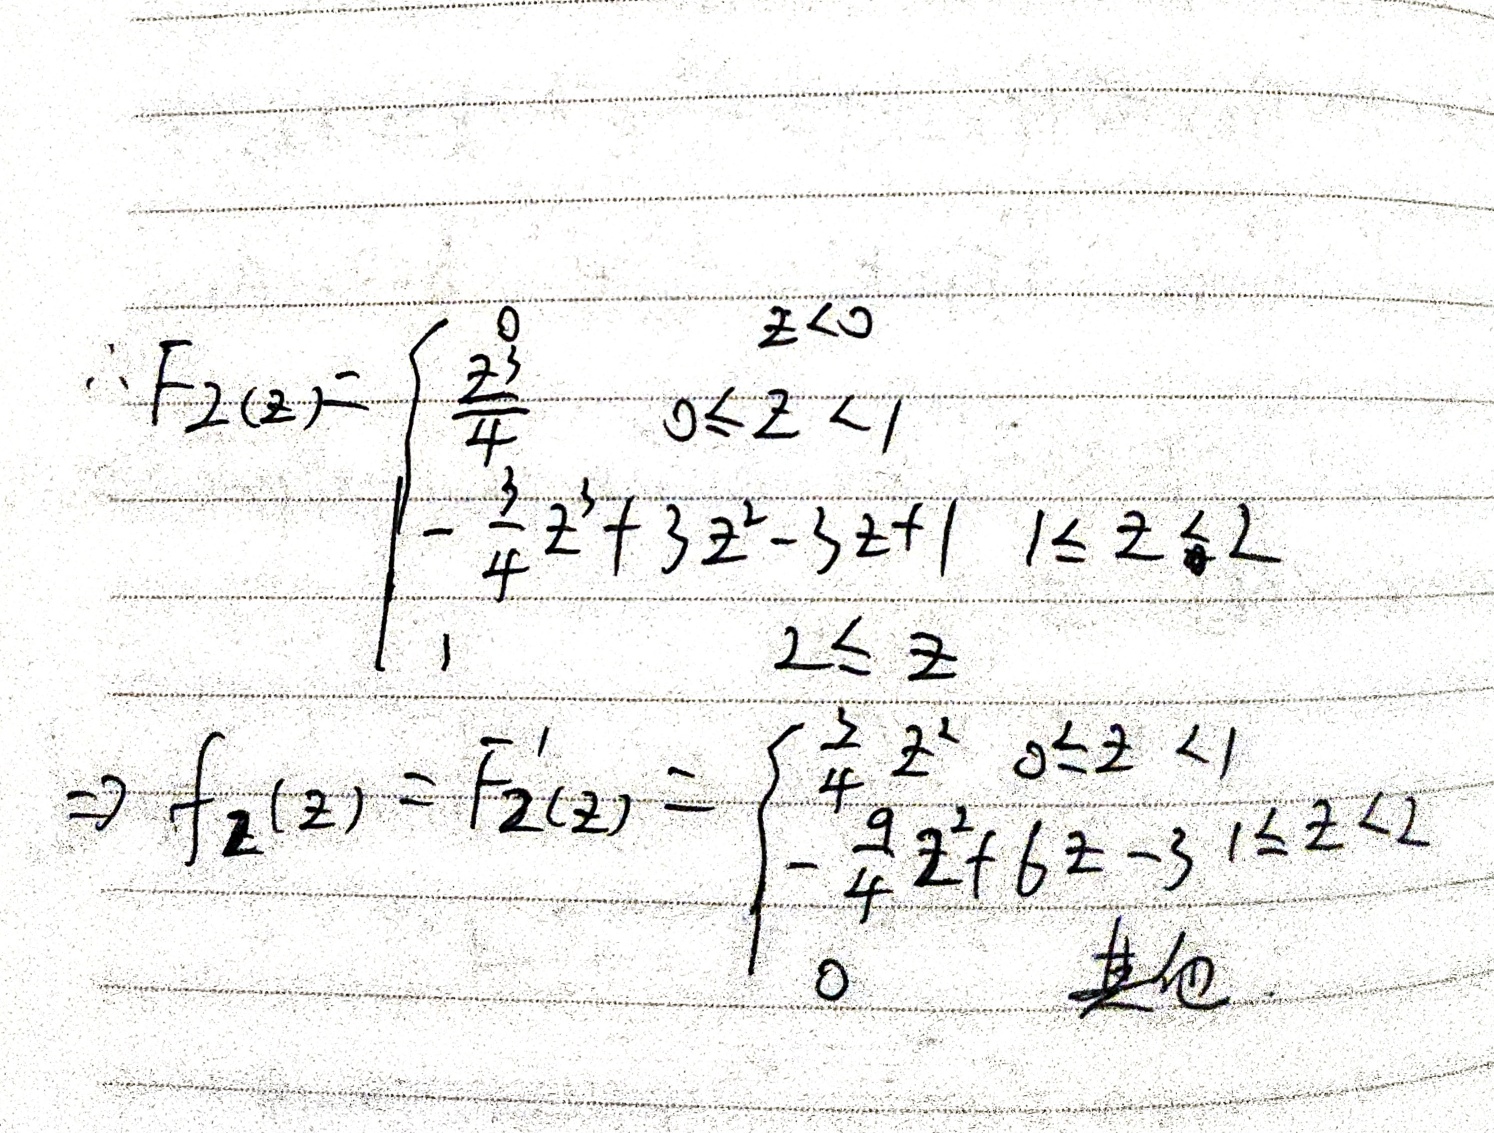 ∴ F_Z(z) = { 0 z<0
z³/4 0≤z<1
-3/4 z³+3z²-3z+1 1≤z≤2
1 2≤z
⇒ f_Z(z) = F_Z'(z) = { 3/4 z² 0≤z<1
-9/4 z²+6z-3 1≤z<2
0 其他.